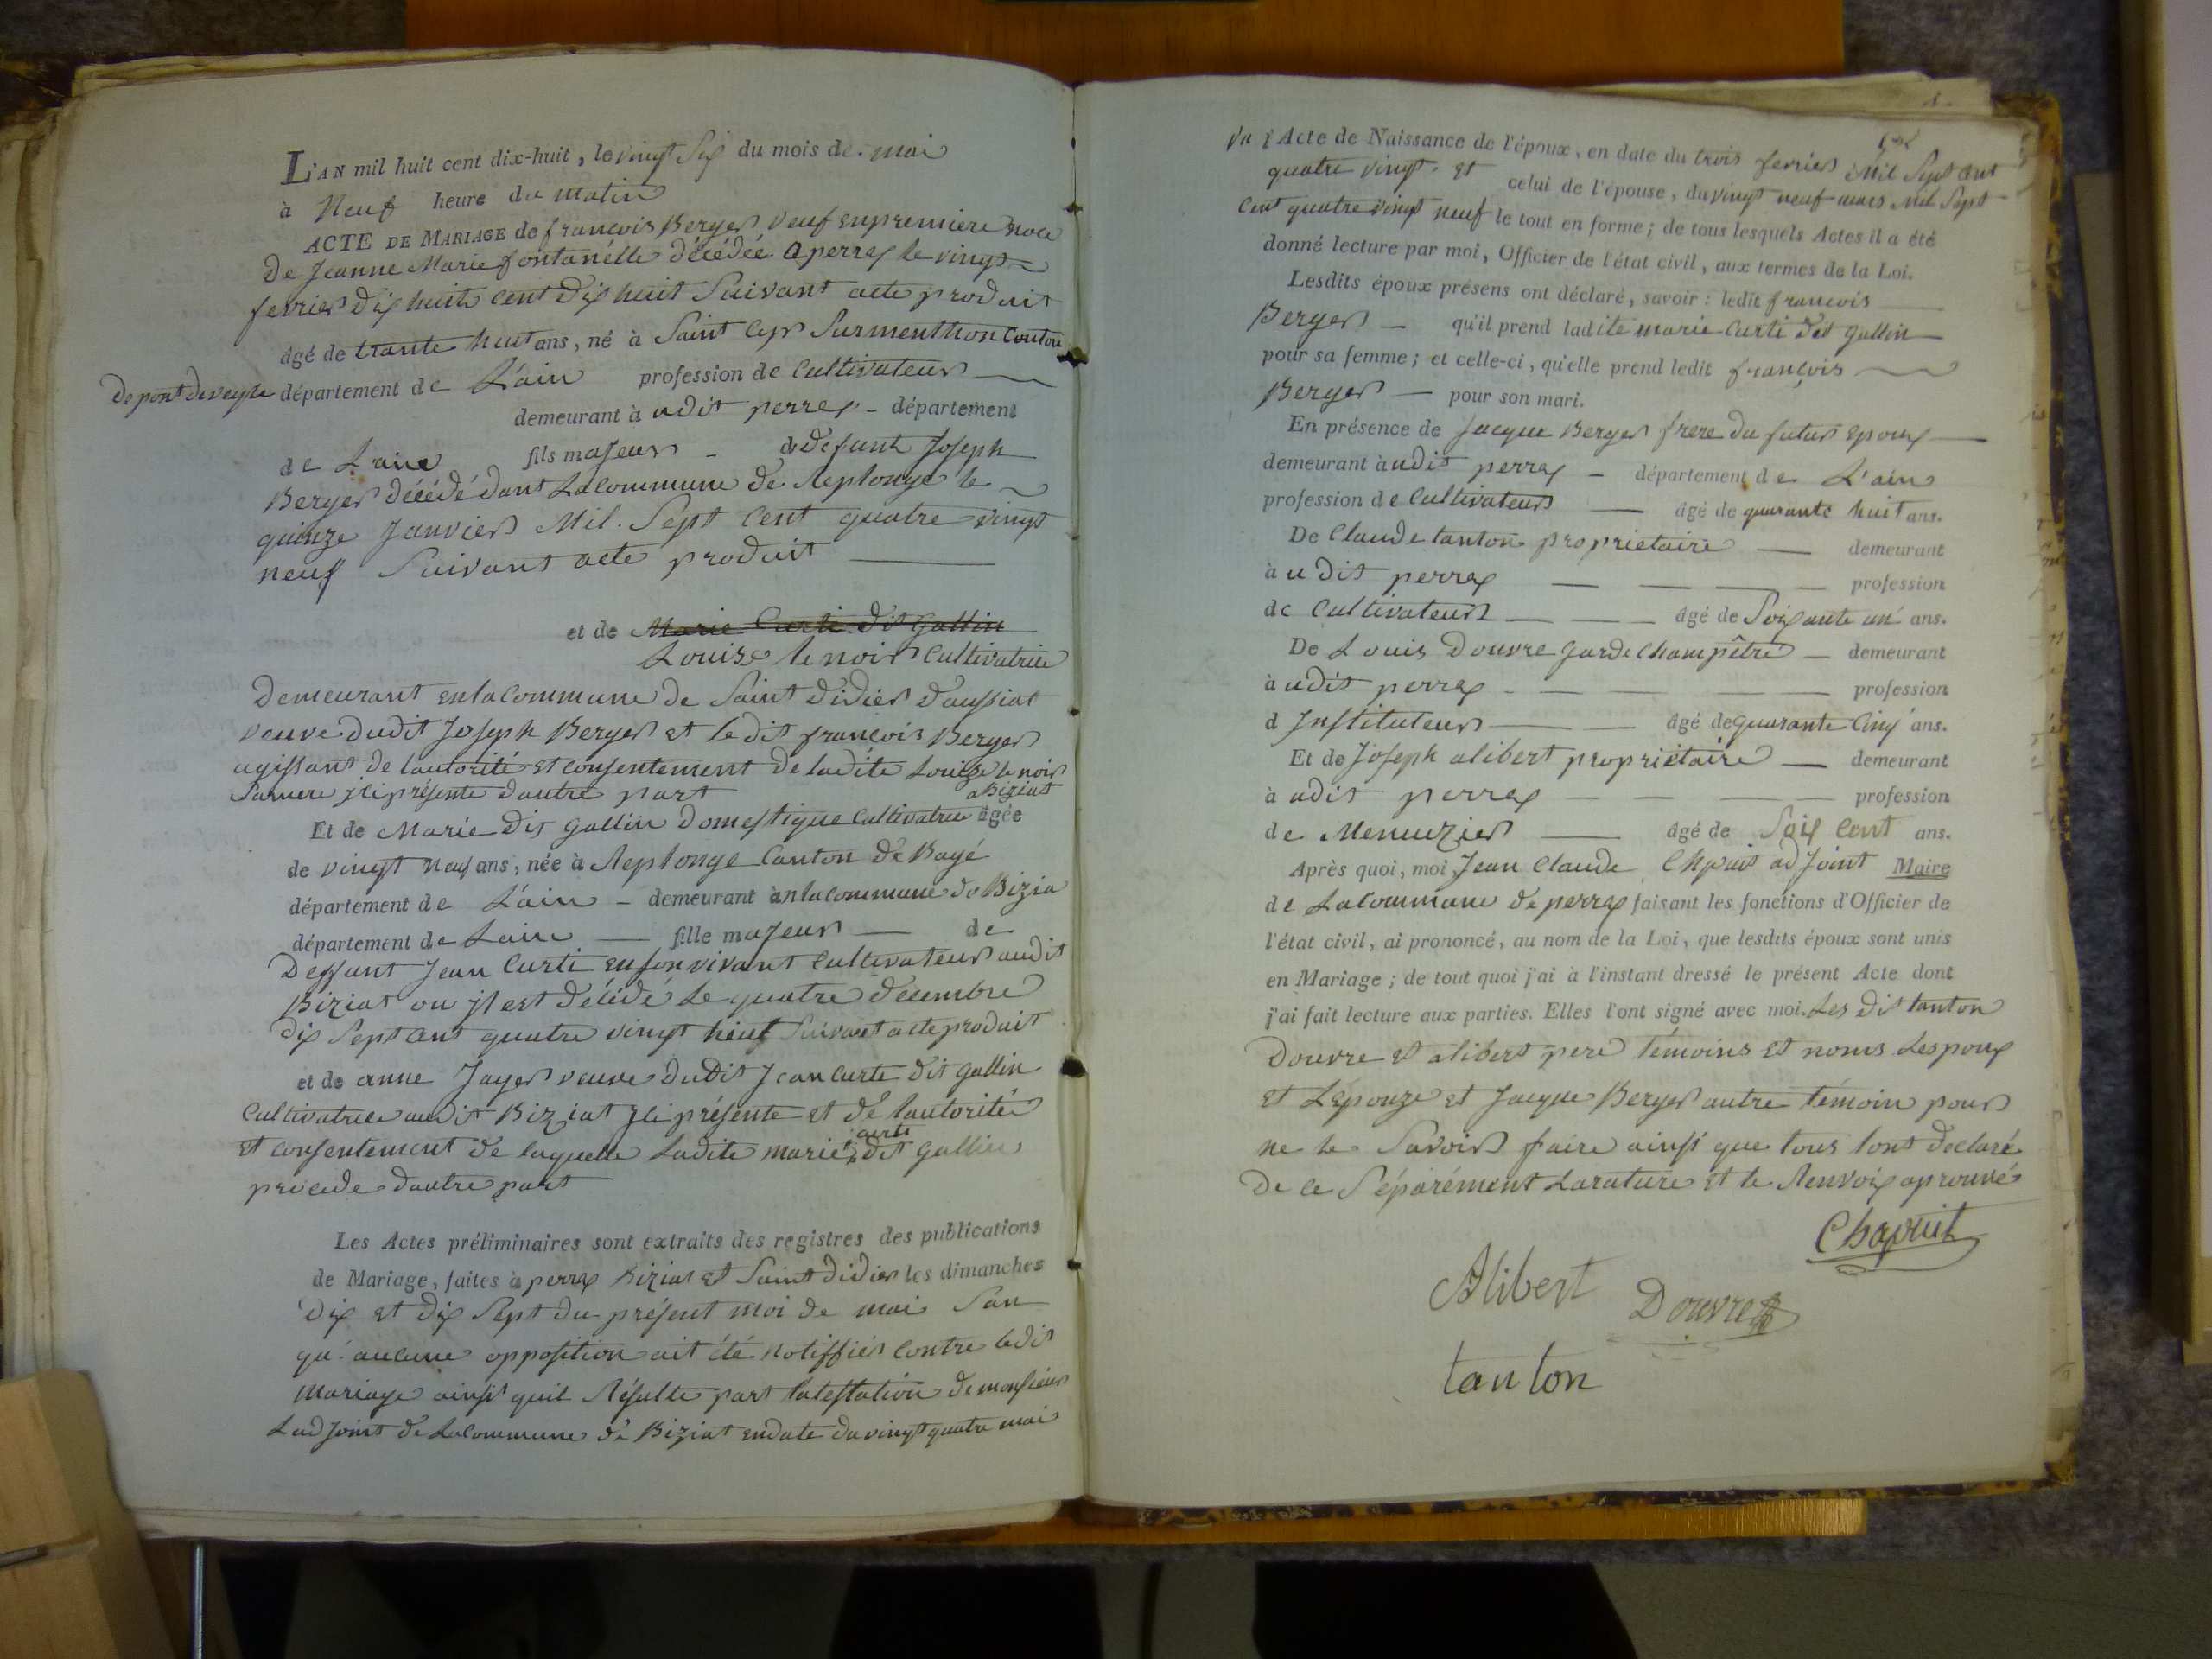 L'AN mil huit cent dix-huit, le vingt Six du mois de. mai
à Neuf heure du matin
ACTE DE MARIAGE de francois Berger veuf enpremiere noce
De Jeanne Marie fontanélle décédée a perrex le vingt
fevrier dix huite cent dix huit Suivant acte produit
âgé de trante huit ans, né à Saint Cyr Surmenthon Canton
Depont Deveyle département de L'ain profession de Cultivateur
demeurant à udit perrex - département
de L'aine fils majeur - de defunt Joseph
Berger décédé dant Lacommune de Replonge le
quinze Janvier Mil. Sept Cent quatre vingt
neuf Suivant acte produit
et de Marie Curti dit Gallin
Louise le noir Cultivatrice
Demeurant enlacommune de Saint didier d'aussiat
veuve dudit Joseph Berger et ledit francois Berger
agissant de lautorité et consentement de ladite Louize le noir
Samere ici présente dautre part aBiziat
Et de Marie dit gallin Domestique Cultivatrice âgée
de vingt neuf ans, née à Replonge Canton de Bagé
département de L'ain - demeurant anlacommune de Bizia
département de Laine fille majeur de
Deffunt Jean Curti ensonvivant Cultivateur audit
Biziat ou jl est décédé le quatre décembre
dix Sept Cent quatre vingt heuf Suivant acte produit
et de anne Jayer veuve dudit Jean Curte dit gallin
Cultivatrice audit Biziat Jci présente et de lautorité
et consentement de laquelle Ladite marie curti dit gallin
procede dautre part
Les Actes préliminaires sont extraits des registres des publications
de Mariage, faites à perrex Biziat et Saint didier les dimanches
dix et dix Sept du présent moi de mai San
qu'aucune opposition ait été notiffiés Contre ledit
mariage ainsi quil Résulte part latestation de monsieur
Ladjoint de Lacommune de Biziat endate du vingt quatre mai
Vu l'Acte de Naissance de l'époux, en date du trois fevrier Mil Sept Cent
quatre vingt. et celui de l'épouse, du vingt neuf mars Mil Sept
Cent quatre vingt neuf le tout en forme; de tous lesquels Actes il a été
donné lecture par moi, Officier de l'état civil, aux termes de la Loi.
Lesdits époux présens ont déclaré, savoir: ledit francois
Berger - qu'il prend ladite marie Curti dit gallin
pour sa femme; et celle-ci, qu'elle prend ledit françois
Berger - pour son mari.
En présence de Jacque Berger frere du futur Epoux
demeurant à udit perrex - département de L'ain
profession de Cultivateur âgé de quarante huit ans.
De Claude tanton proprietaire demeurant
à udit perrex profession
de Cultivateur âgé de Soixante un ans.
De Louis Douvre garde Champêtre - demeurant
à udit perrex profession
d Instituteur âgé de quarante Cinq ans.
Et de Joseph alibert propriétaire demeurant
à udit perrex profession
de Menuzier âgé de Soix Cent ans.
Après quoi, moi Jean Claude Chpuis adjoint Maire
de Lacommune de perrex faisant les fonctions d'Officier de
l'état civil, ai prononcé, au nom de la Loi, que lesdits époux sont unis
en Mariage; de tout quoi j'ai à l'instant dressé le présent Acte dont
j'ai fait lecture aux parties. Elles l'ont signé avec moi. Les dit tanton
Douvre et alibert pere témoins et nomis Lespoux
et Lépouze et Jacque Berger autre témoin pour
ne le Savoir faire ainsi que tous lont declaré
De ce Séparément Larature et le Renvoix aprouvés
Chapuit
Alibert Douvre
tanton